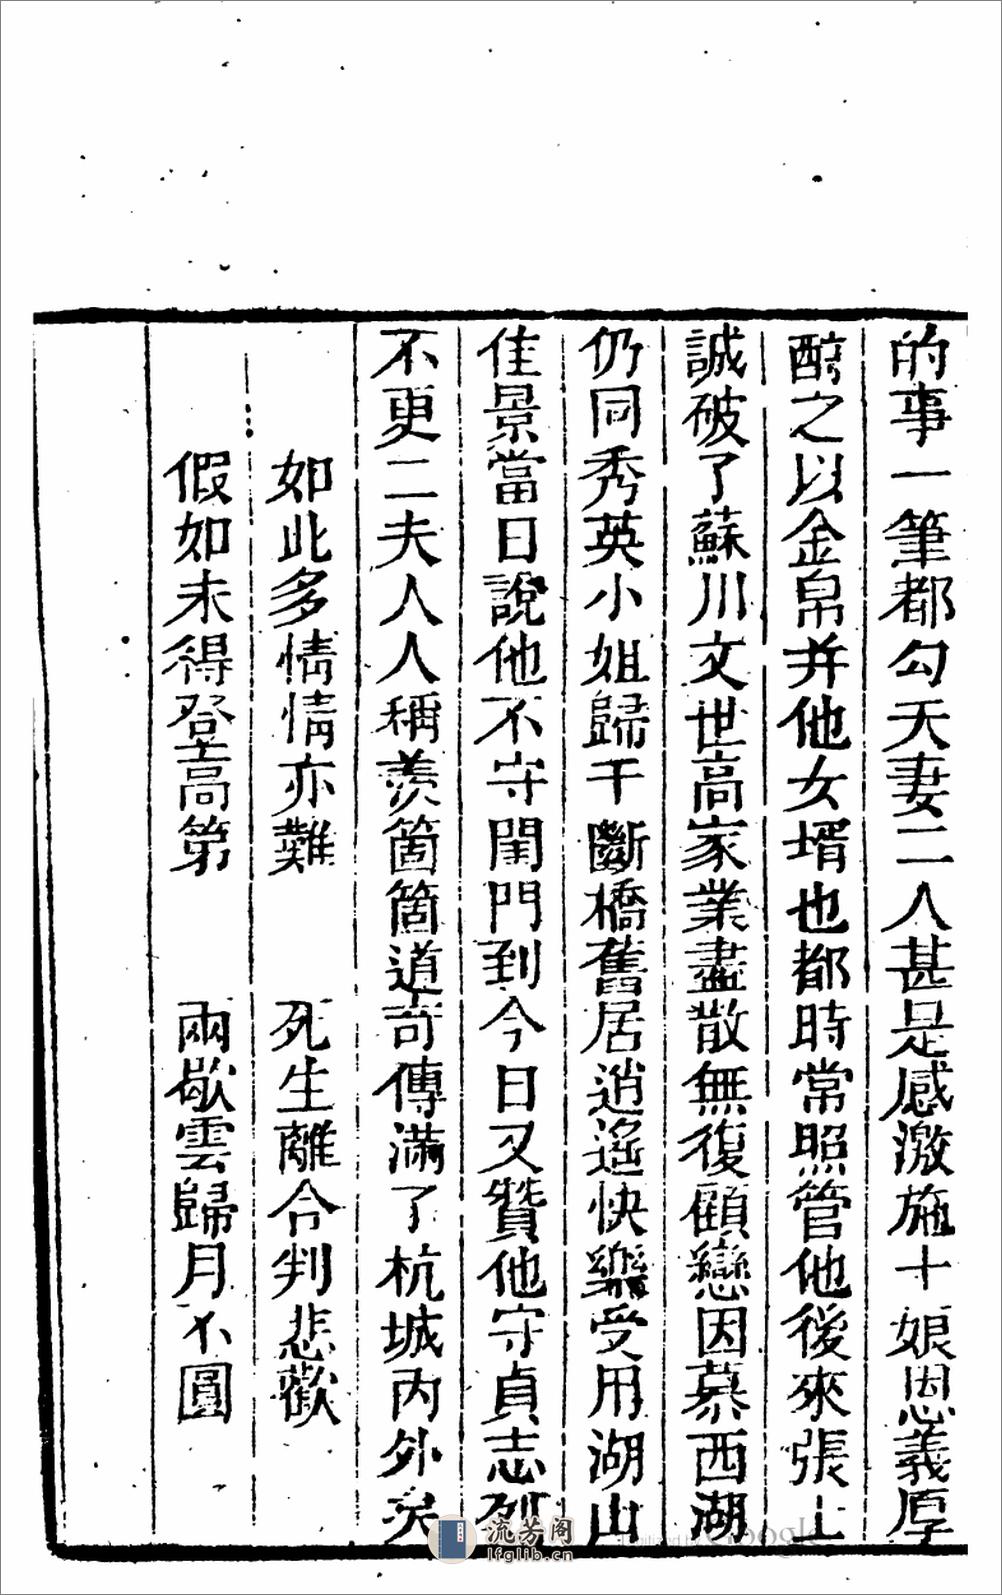 的事一筆都勾天妻二人甚是感激施十娘恩義厚
酧之以金帛并他女壻也都時常照管他後來張士
誠破了蘇川文世高家業盡散無復顧戀因慕西湖
仍同秀英小姐歸干斷橋舊居逍遙快樂受用湖山
佳景當日說他不守閨門到今日又贊他守貞志烈
不更二夫人人稱羨箇箇道奇傳滿了杭城內外矣
如此多情情亦難　死生離合判悲歡
假如未得登高第　兩歇雲歸月不圓
流芳阁
lfglib.cn
Google